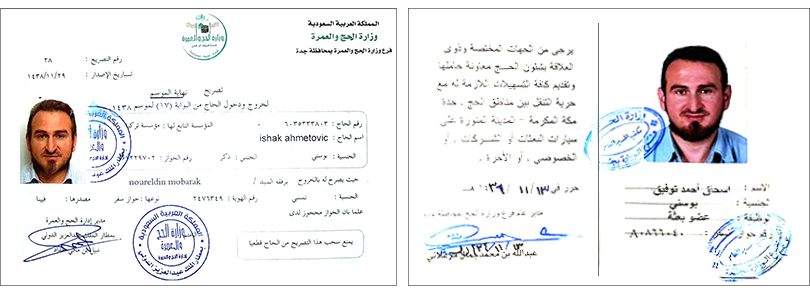 المملكة العربية السعودية
وزارة الحج والعمرة
فرع وزارة الحج والعمرة بمحافظة جدة
وزارة الحج والعمرة
رقم التصريح : ٢٨
تاريخ الإصدار : ١٤٣٨/١١/٢٩
تصريح نهاية الموسم
لخروج ودخول الحاج من البوابة (١٧) لموسم ١٤٣٨
رقم الحاج : ٦٠٣٥٣٣٣٨٠٣ المؤسسة التابع لها : مؤسسة
اسم الحاج : ishak ahmetovic
الجنسية : بوسني الجنس : ذكر رقم الجواز :
حيث يصرح له بالخروج برفقه السيد / noureldin mobarak
الجنسية : نمسي رقم الهوية : نوعها : جواز سفر مصدرها : فينا
علما بان الجواز محجوز لدى
يمنع سحب هذا التصريح من الحاج قطعيا
مدير إدارة الحج والعمرة
بمطار الملك عبدالعزيز الدولي
المملكة العربية السعودية
وزارة الحج والعمرة
بمطار الملك عبدالعزيز الدولي
يرجى من الجهات المختصة وذوى
العلاقة بشئون الحج معاونة حاملها
وتقديم كافة التسهيلات اللازمة له مع
حرية التنقل بين مناطق الحج . جدة
مكة المكرمة - المدينة المنورة على
سيارات البعثات أو الشركات . أو
الخصوصي , أو الأجرة .
حرر في
مدير عام فرع وزارة الحج
عبدالله بن محمد
الاسم : اسحاق أحمد توفيق
الجنسية : بوسني
الوظيفة : عضو بعثة
رقم جواز